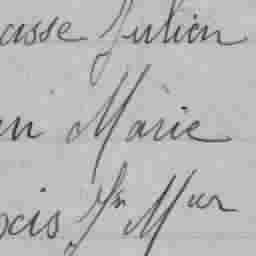 asse Julien
en Marie
ocis Jn Mur